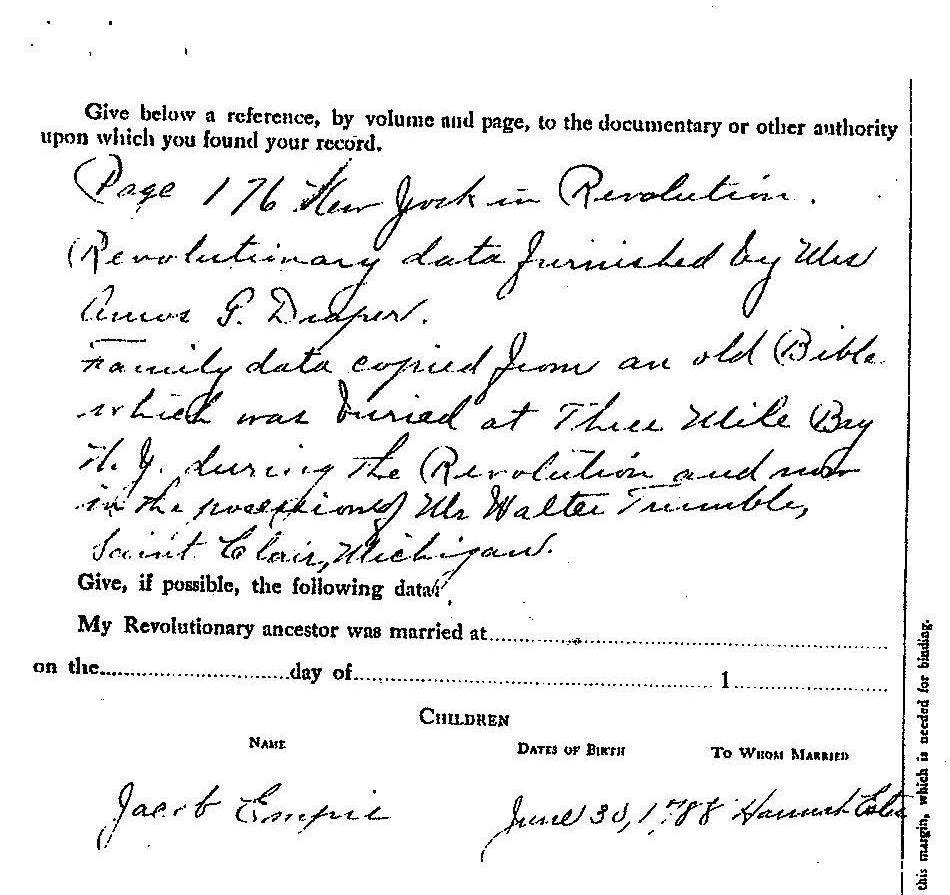 Give below a reference, by volume and page, to the documentary or other authority
upon which you found your record.
Page 176 New York in Revolution.
Revolutionary data furnished by Mrs
Amos G. Draper.
Family data copied from an old Bible
which was buried at Three Mile Bay
N. Y. during the Revolution and now
in the possession of Mr Walter Trumble,
Saint Clair, Michigan.
Give, if possible, the following data:
My Revolutionary ancestor was married at
on the day of 1
CHILDREN
NAME DATES OF BIRTH TO WHOM MARRIED
Jacob Empie June 30, 1788 Hannah
this margin, which is needed for binding.